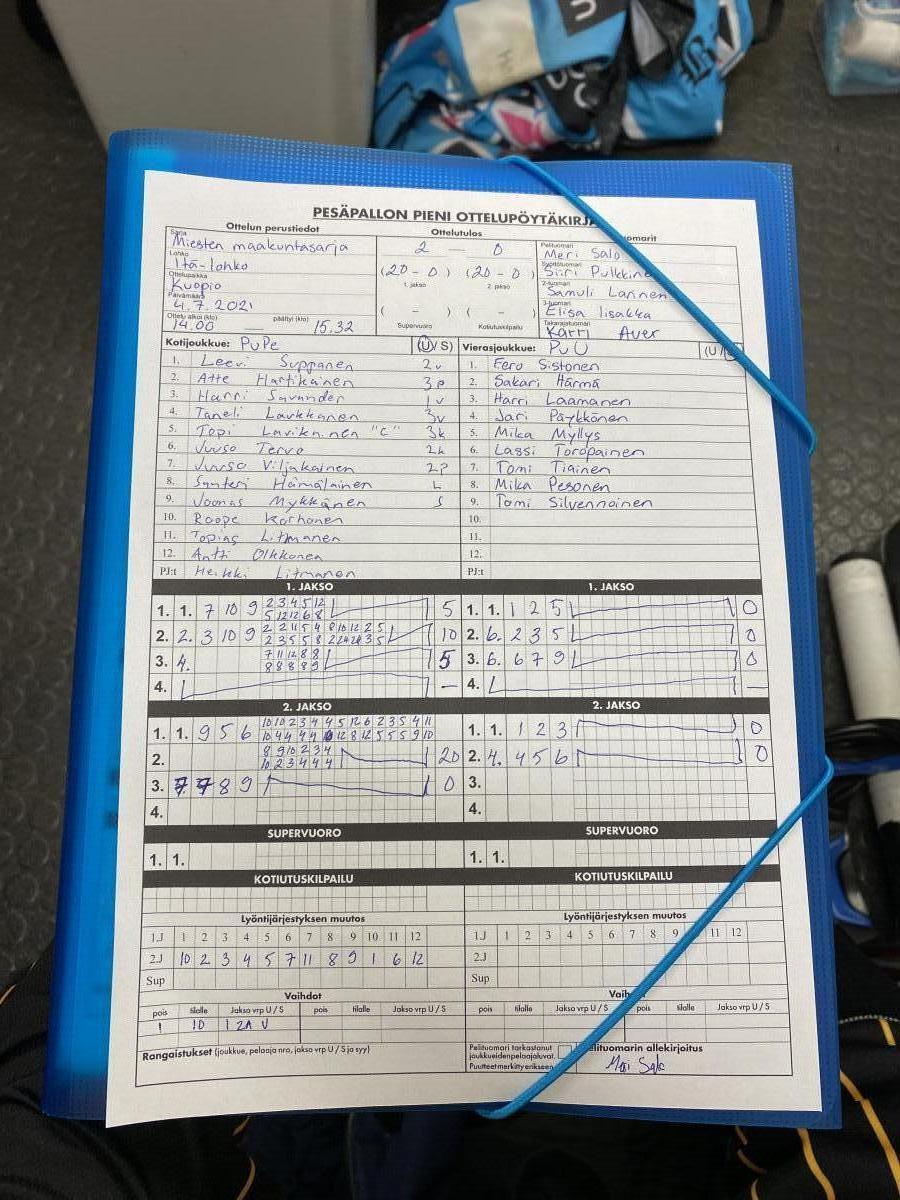 PESÄPALLON PIENI OTTELUPÖYTÄKIRJA
Ottelun perustiedot Ottelutulos
Sarja
Miesten maakuntasarja
Lohko
Itä-lohko
Ottelupaikka
Kuopio
Päivämäärä
4.7.2021
Ottelu alkoi (klo) päättyi (klo)
14.00 — 15.32
2 — 0
(20 - 0) (20 - 0)
1. jakso 2. jakso
( - ) ( - )
Supervuoro Kotiutuskilpailu
Pelituomari
Meri Salo
Syöttötuomari
Siiri Pulkkine
2-tuomari
Samuli Lannen
3-tuomari
Elisa Iisakka
Takarajatuomari
Karri Auer
Kotijoukkue: PuPe (U/ S) Vierasjoukkue: PuU (U /
1. Leevi Suppanen 2v 1. Eero Sistonen
2. Atte Hartikainen 3p 2. Sakari Härmä
3. Harri Savander 1v 3. Harri Laamanen
4. Taneli Laukkanen 3v 4. Jari Päykkönen
5. Topi Lavikainen "C" 3k 5. Mika Myllys
6. Juuso Tervo 2k 6. Lassi Toropainen
7. Juuso Viljakainen 2p 7. Tomi Tiainen
8. Santeri Hämäläinen L 8. Mika Pesonen
9. Joonas Mykkänen S 9. Tomi Silvennoinen
10. Roope Korhonen 10.
11. Topias Litmanen 11.
12. Antti Olkkonen 12.
PJ:t Heikki Litmanen PJ:t
1. JAKSO 1. JAKSO
1. 1. 7 10 9 2 3 4 5 12 5 1. 1. 1 2 5 0
5 12 12 6 8
2. 2. 3 10 9 2 2 11 5 4 8 10 12 2 5 10 2. 6. 2 3 5 0
2 3 5 5 8
3. 4. 7 11 12 8 8 5 3. 6. 6 7 9 0
8 8 8 8 9
4. — 4. —
2. JAKSO 2. JAKSO
1. 1. 9 5 6 10 10 2 3 4 4 5 12 6 2 3 5 4 11 1. 1. 1 2 3 0
10 4 4 4 4 12 8 12 5 5 5 9 10
2. 8 9 10 2 3 4 20 2. 4. 4 5 6 0
10 2 3 4 4 4
3. 7. 7 8 9 0 3.
4. 4.
SUPERVUORO SUPERVUORO
1. 1. 1. 1.
KOTIUTUSKILPAILU KOTIUTUSKILPAILU
Lyöntijärjestyksen muutos Lyöntijärjestyksen muutos
1.J 1 2 3 4 5 6 7 8 9 10 11 12 1.J 1 2 3 4 5 6 7 8 9 11 12
2.J 10 2 3 4 5 7 11 8 9 1 6 12 2.J
Sup Sup
Vaihdot Vaih
pois tilalle Jakso vrp U / S pois tilalle Jakso vrp U / S pois tilalle Jakso vrp U / S pois tilalle Jakso vrp U / S
1 10 1 2A U
Rangaistukset (joukkue, pelaaja nro, jakso vrp U / S ja syy)
Pelituomari tarkastanut
joukkueidenpelaajaluvat.
Puutteet merkitty erikseen
elituomarin allekirjoitus
Meri Salo